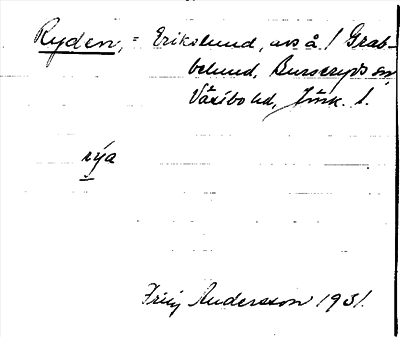 Ryden, = Erikslund, avs å. / Grab-
belund, Burseryds sn,
Västbo hd, Jönk. l.
rýa
Fritz Andersson 1931.